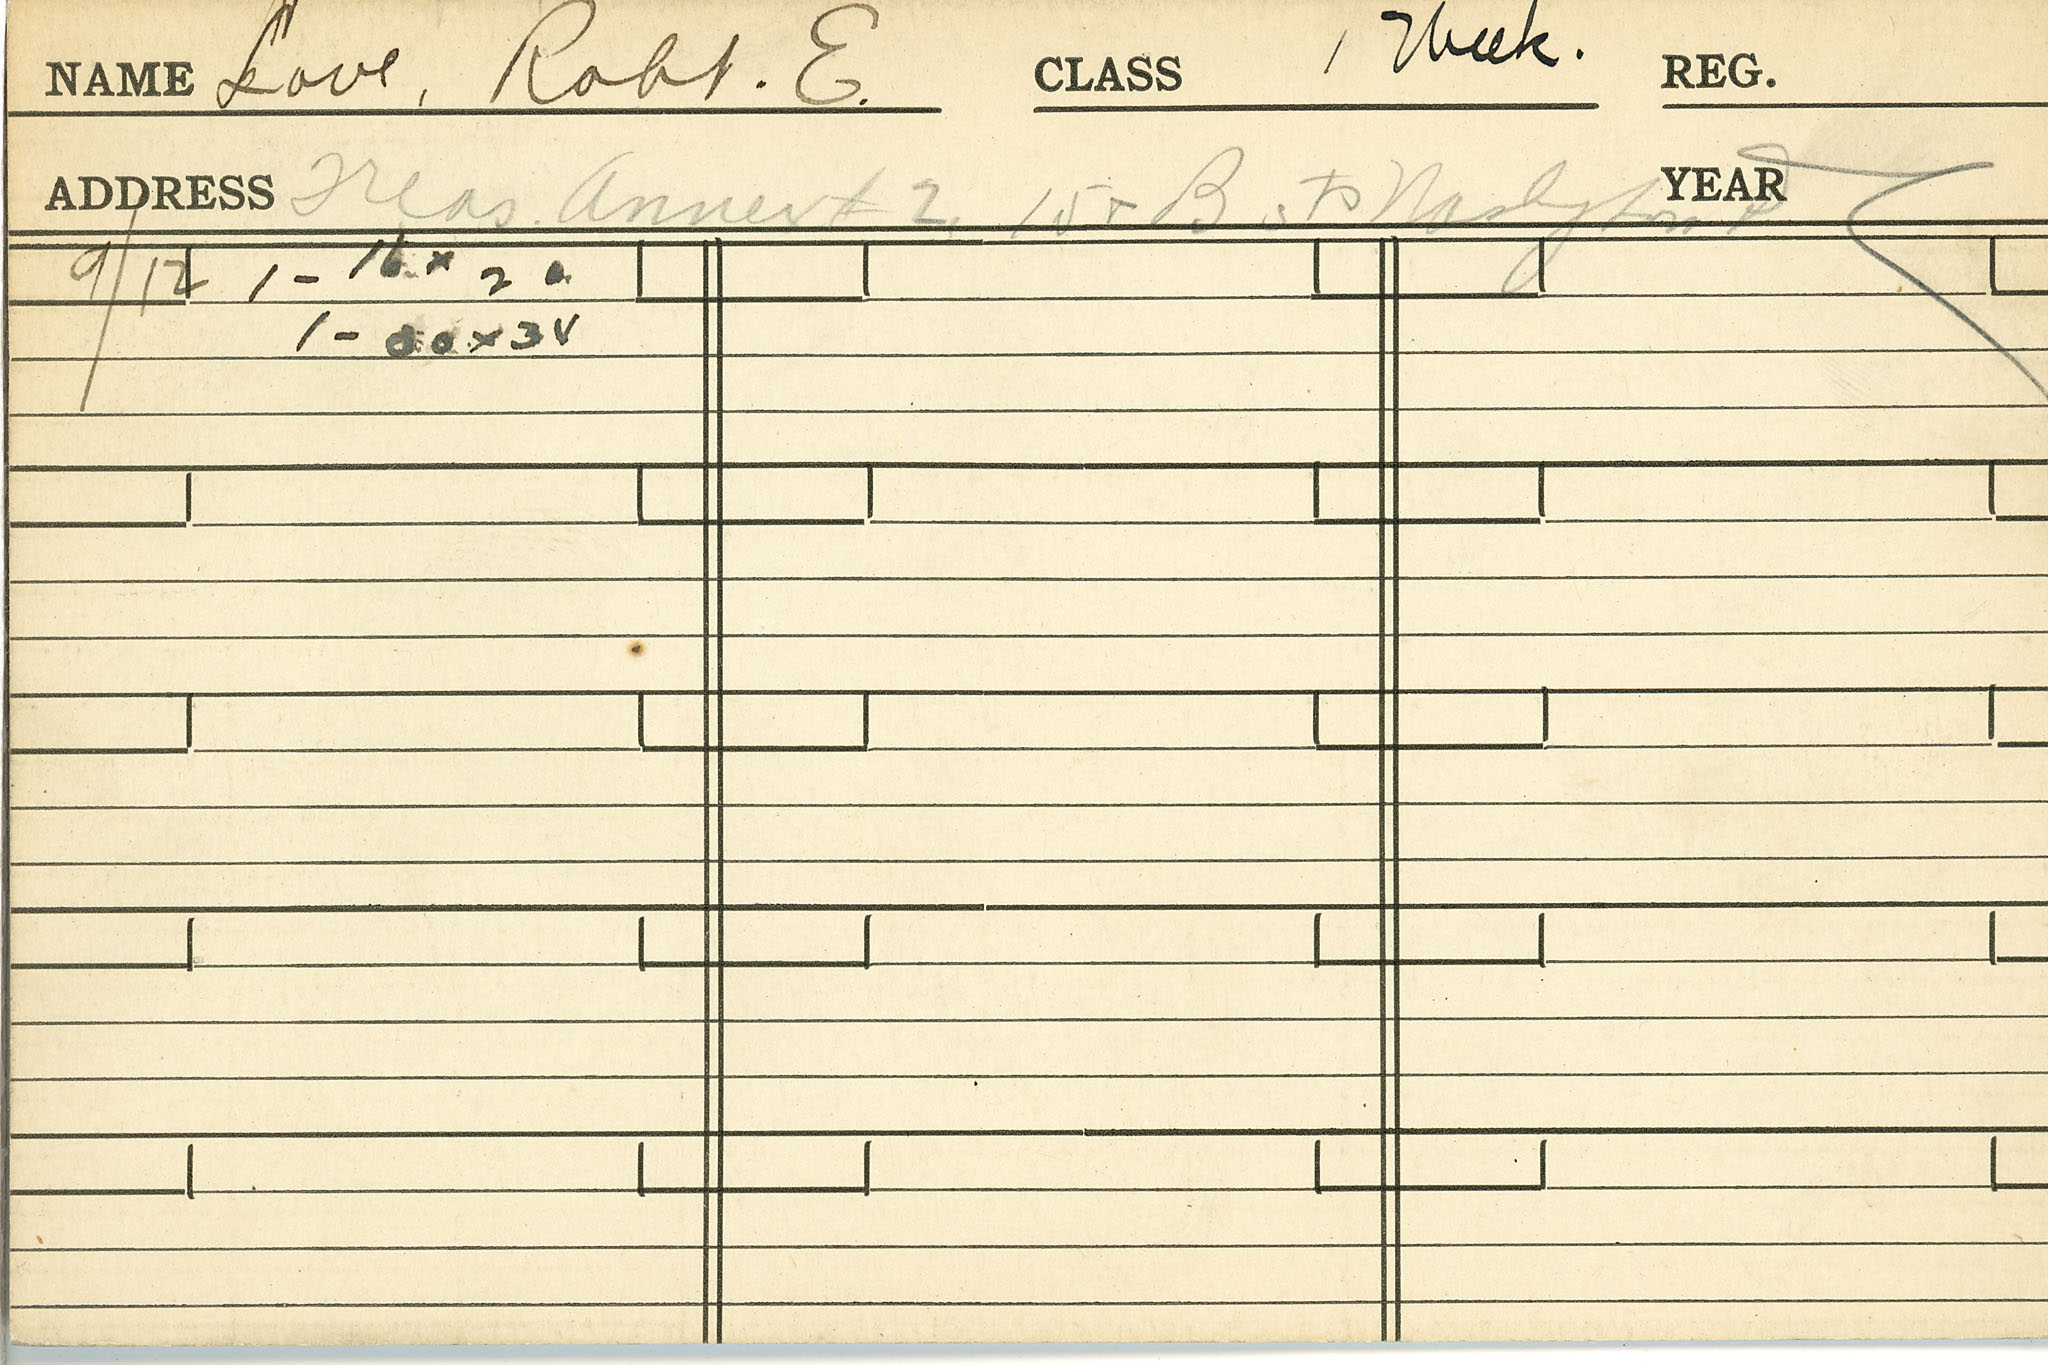 NAME Love, Robt. E. CLASS 1 Week. REG.
ADDRESS Treas. Annex # 2, 15 + B sts Washington YEAR
9/12 1 - 16 x 20
1 - 30 x 3V